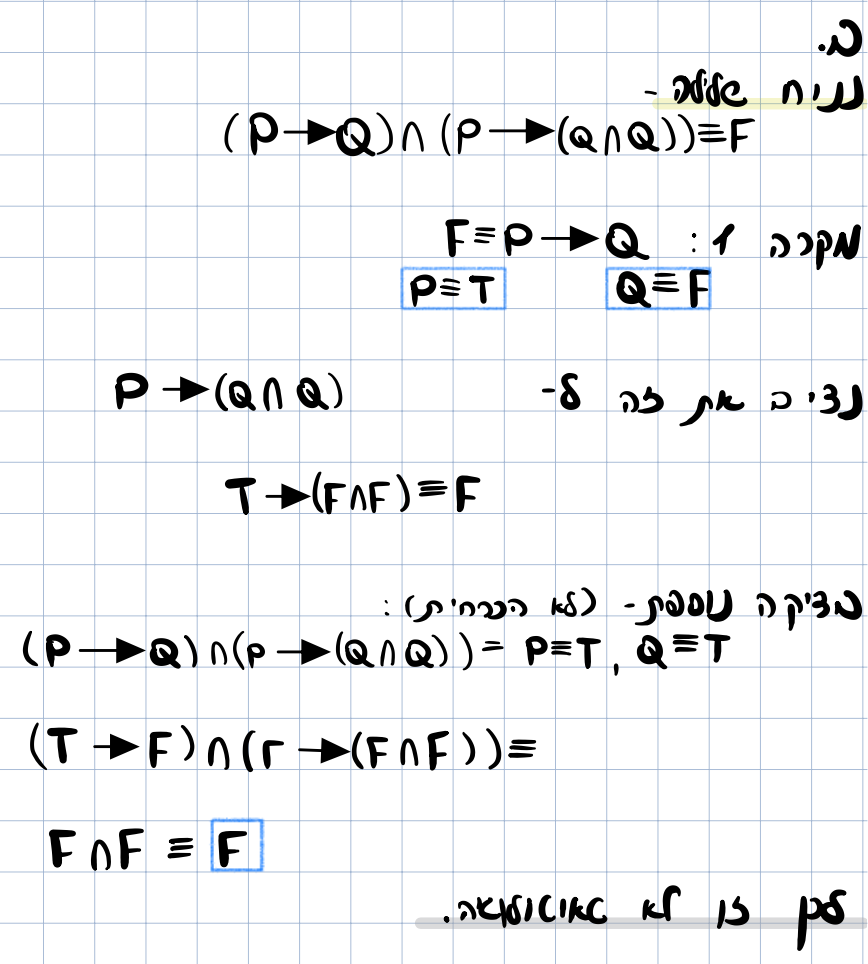 ב.
נניח שלילה -
(P→Q)∩(P→(Q∩Q))≡F
מקרה 1: F≡P→Q
P≡T Q≡F
נציב את זה ל- P→(Q∩Q)
T→(F∩F)≡F
בדיקה נוספת- (לא הכרחית):
(P→Q)∩(P→(Q∩Q))= P≡T, Q≡T
(T→F)∩(T→(F∩F))≡
F∩F≡F
לכן זו לא טאוטולוגיה.